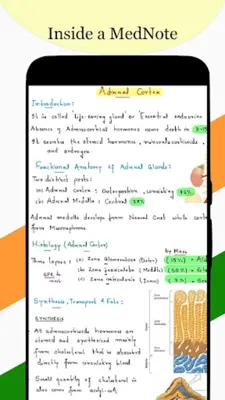 Inside a MedNote
Adrenal Cortex
Introduction:
It is called 'Life-saving gland' or Essential endocrine
Absence of Adrenocortical hormones causes death in 3-15
It secretes the steroid hormones, mineralocorticoids,
and androgens
Functional Anatomy of Adrenal Glands:
Two distinct parts:
(a) Adrenal cortex : Outer portion, consisting 72%
(b) Adrenal Medulla : Central 28%
Adrenal medulla develops from Neural Crest while cortex
from Mesenephros.
Histology (Adrenal Cortex)
by Mass
Three layers : (a) Zona Glomerulosa (Outer) (15%)
(b) Zona fasciculata (Middle) (50%)
(c) Zona (
Synthesis, Transport & Fate:
SYNTHESIS
All adrenocortical hormones are
steroid and synthesized mainly
from cholesterol that is absorbed
directly from circulating blood.
Small quantity of cholesterol is
also comes from acetyl-coA.